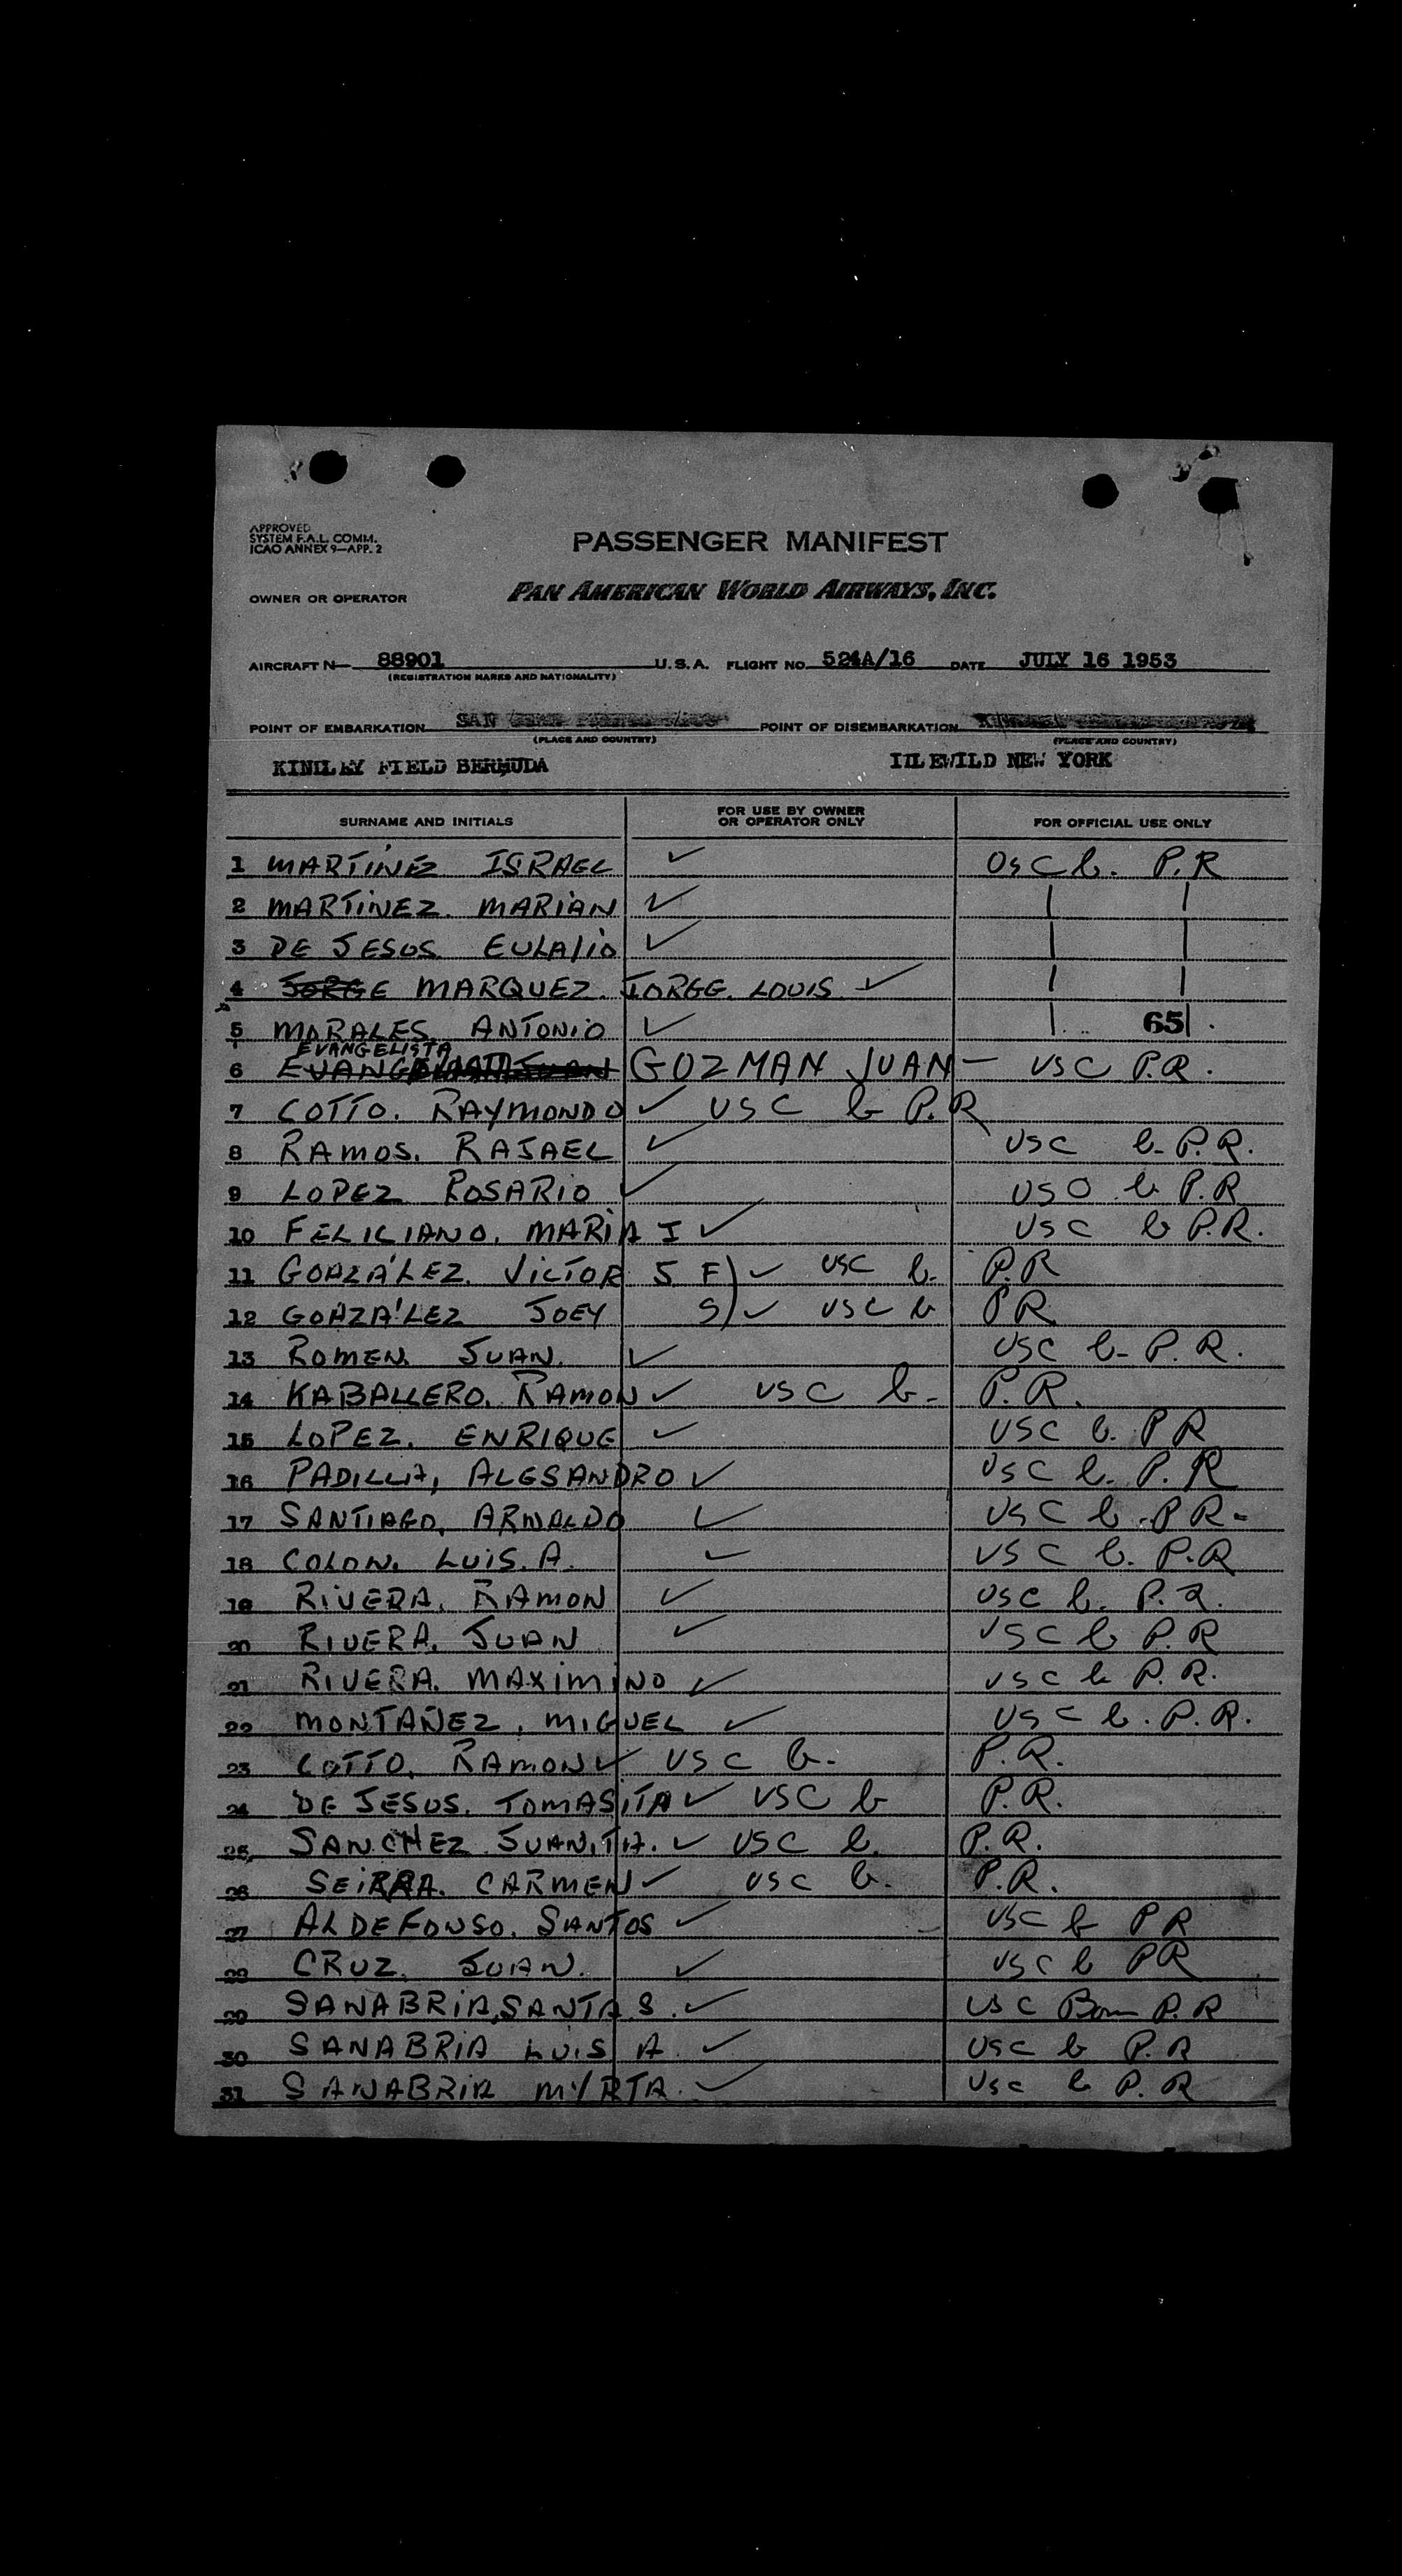 APPROVED
SYSTEM F.A.L. COMM.
ICAO ANNEX 9—APP. 2
PASSENGER MANIFEST
OWNER OR OPERATOR PAN AMERICAN WORLD AIRWAYS, INC.
AIRCRAFT N— 88901 U.S.A. FLIGHT NO. 524A/16 DATE JULY 16 1953
(REGISTRATION MARKS AND NATIONALITY)
POINT OF EMBARKATION SAN POINT OF DISEMBARKATION
(PLACE AND COUNTRY) (PLACE AND COUNTRY)
KINDLEY FIELD BERMUDA IDLEWILD NEW YORK
SURNAME AND INITIALS FOR USE BY OWNER OR OPERATOR ONLY FOR OFFICIAL USE ONLY
1 MARTINEZ ISRAEL ✓ USC b. P.R
2 MARTINEZ. MARIAN ✓ | |
3 DE JESUS EULALIO ✓ | |
4 JORGE MARQUEZ. JORGE. LOUIS ✓ | |
5 MORALES ANTONIO ✓ | 65| .
EVANGELISTA
6 GUZMAN JUAN — USC P.R.
7 COTTO. RAYMONDO ✓ USC b P.R
8 RAMOS. RAFAEL ✓ USC b- P.R.
9 LOPEZ ROSARIO ✓ USC b P.R
10 FELICIANO. MARIA I ✓ USC b P.R.
11 GONZA'LEZ. VICTOR 5 F) ✓ USC b. P.R
12 GONZA'LEZ JOEY S) ✓ USC b PR
13 ROMEN. JUAN. ✓ USC b- P.R.
14 KABALLERO. RAMON ✓ USC b- P.R.
15 LOPEZ. ENRIQUE ✓ USC b. PR
16 PADILLA, ALESANDRO ✓ USC b. P.R
17 SANTIAGO. ARNALDO ✓ USC b. PR-
18 COLON. LUIS. A. ✓ USC b. P.R
19 RIVERA. RAMON ✓ USC b. P.R.
20 RIVERA. JUAN ✓ USC b P.R
21 RIVERA. MAXIMINO ✓ USC b P.R.
22 MONTAÑEZ, MIGUEL ✓ USC b. P.R.
23 COTTO. RAMON ✓ USC b- P.R.
24 DE JESUS. TOMASITA ✓ USC b P.R.
25 SANCHEZ JUANITA. ✓ USC b. P.R.
26 SEIRRA. CARMEN ✓ USC b. P.R.
27 ALDEFONSO. SANTOS ✓ USC b PR
28 CRUZ. JUAN. ✓ USC b PR
29 SANABRIA, SANTA S. ✓ USC Born P.R
30 SANABRIA LUIS A. ✓ USC b P.R
31 SANABRIA MYRTA. ✓ USC b P.R